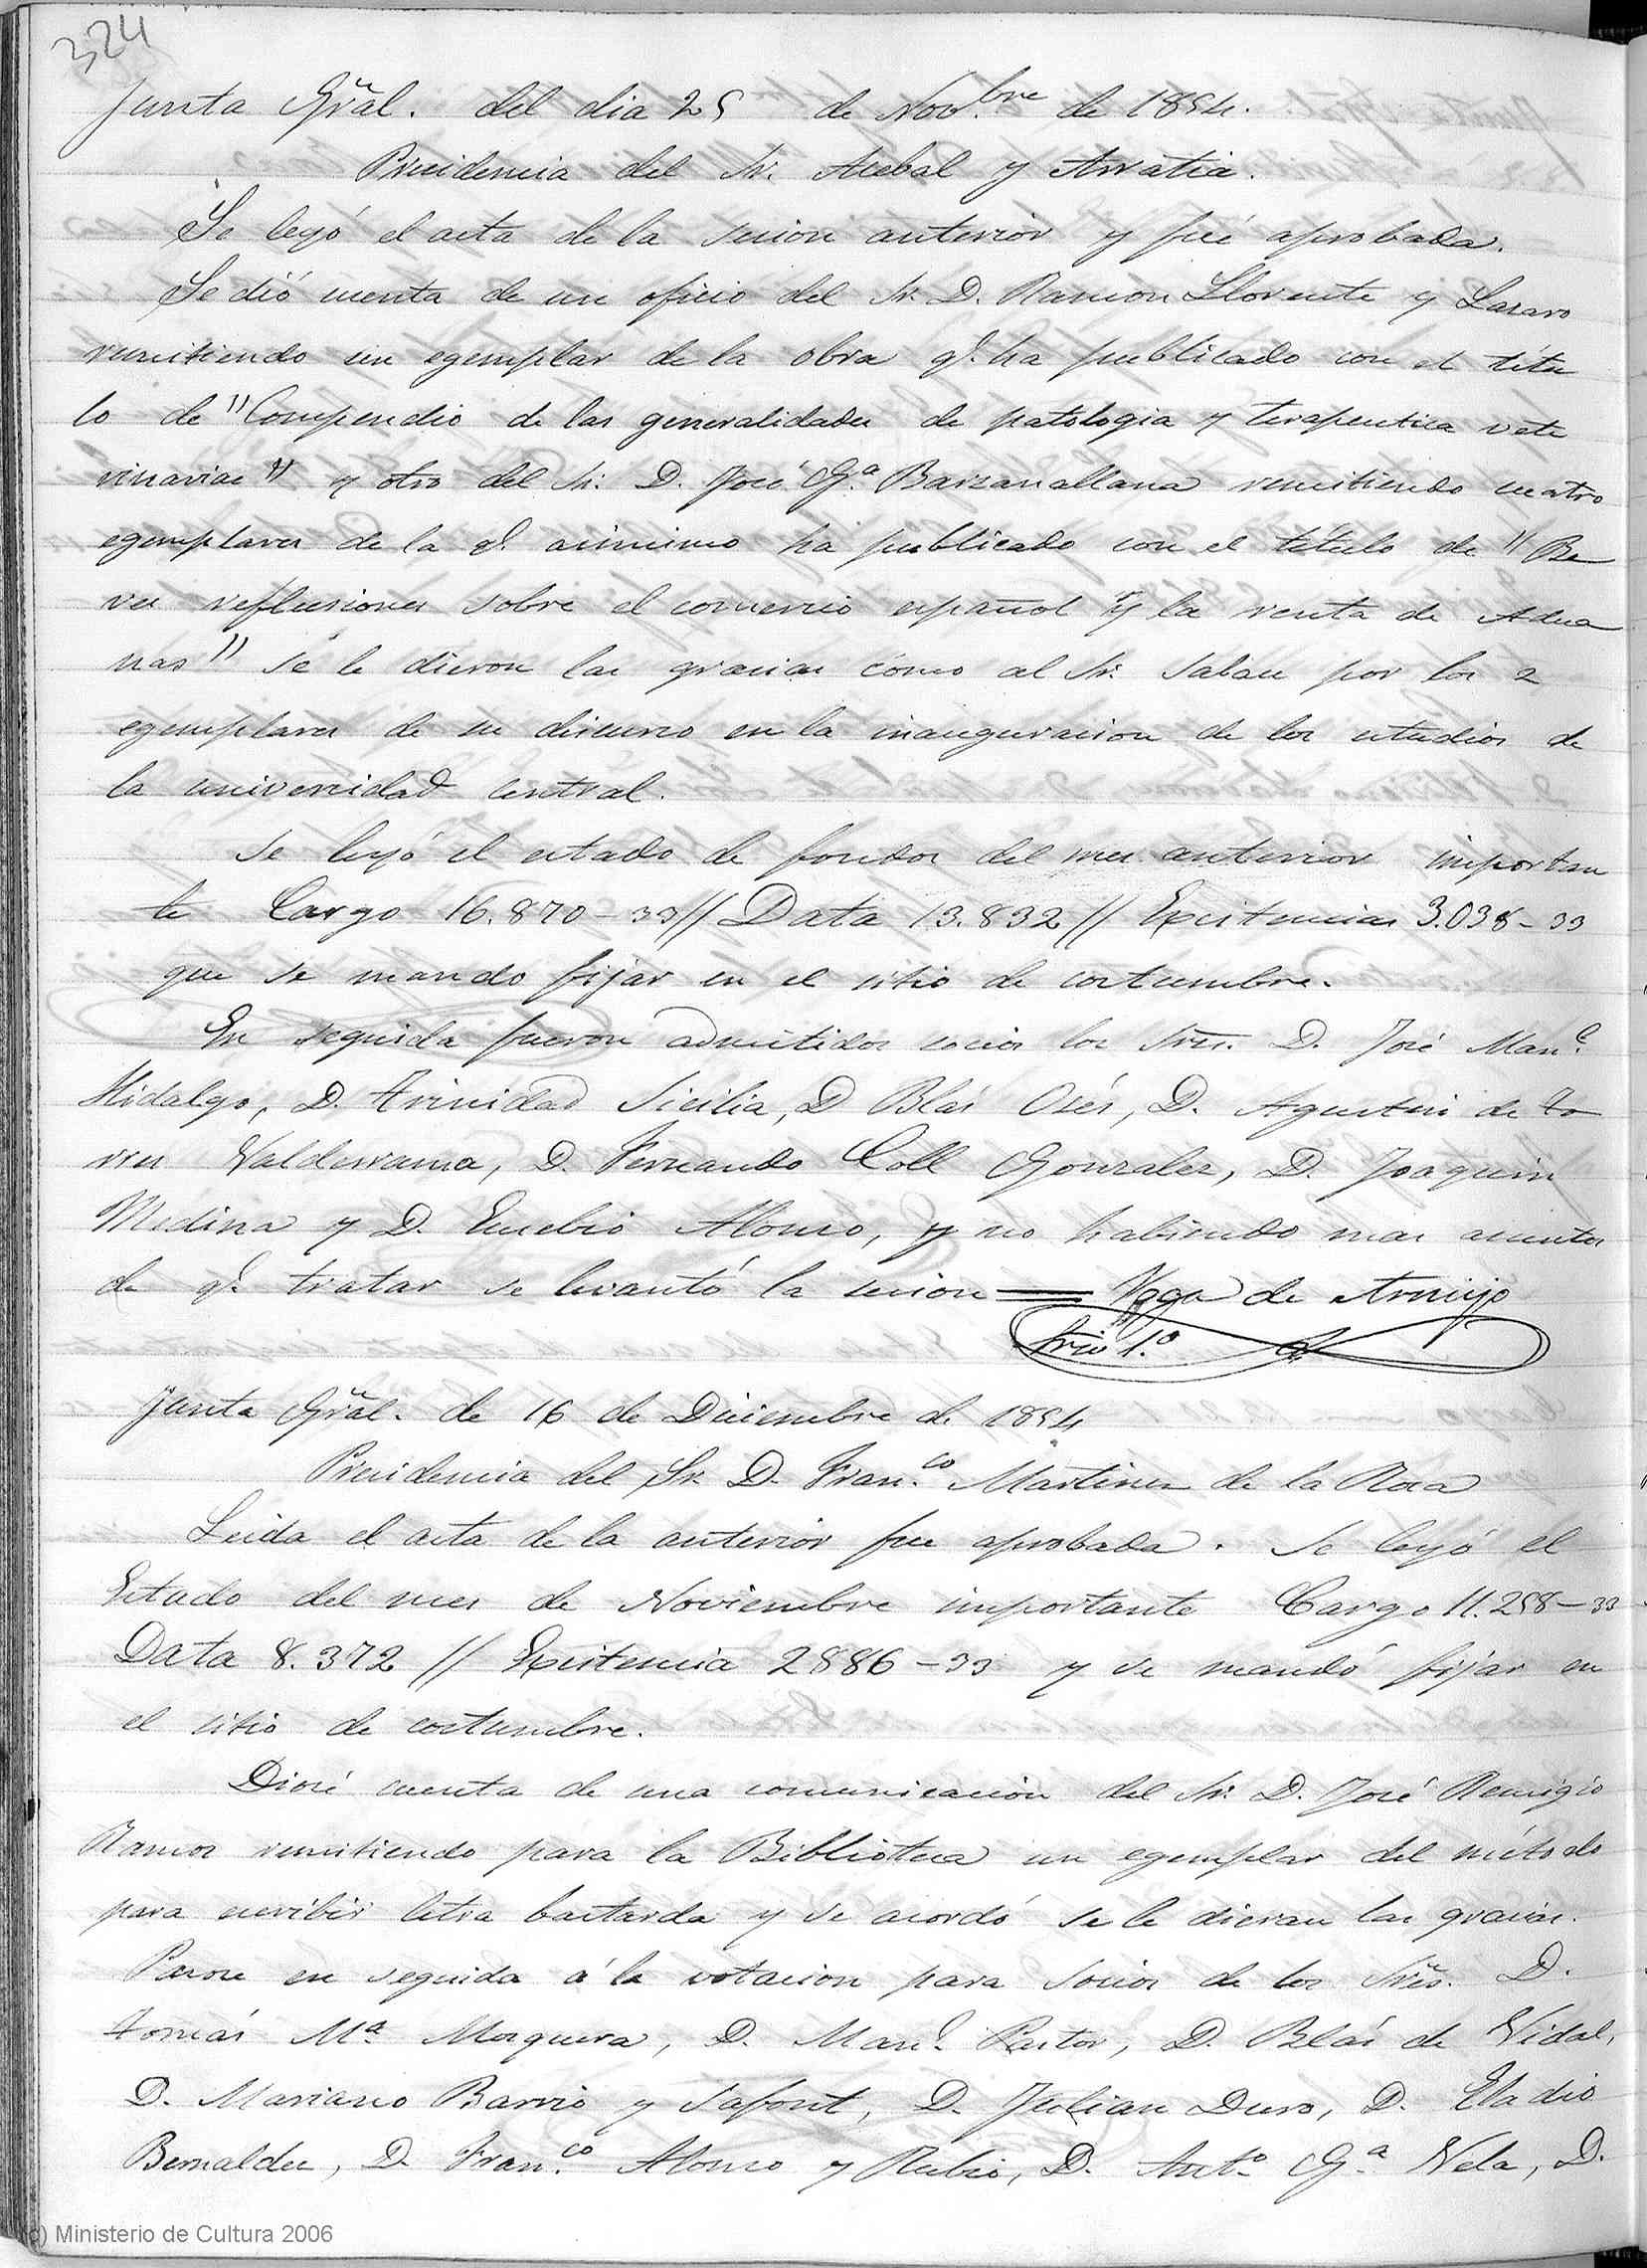 324
Junta Gral. del dia 25 de Nov.bre de 1854.
Presidencia del Sr. Acebal y Arratia.
Se leyó el acta de la sesion anterior y fué aprobada.
Se dió cuenta de un oficio del Sr. D. Ramon Llorente y Lazaro
remitiendo un egemplar de la obra q.e ha publicado con el títu
lo de "Compendio de las generalidades de patologia y terapeutica vete
rinarias" y otro del Sr. D. José G.a Barzanallana remitiendo cuatro
egemplares de la q.e asimismo ha publicado con el título de "Bre
ves reflexiones sobre el comercio español y la renta de Adua
nas" se le dieron las gracias como al Sr. Sabau por los 2
egemplares de su discurso en la inauguracion de los estudios de
la universidad central.
Se leyó el estado de fondos del mes anterior importan
te Cargo 16.870-33 // Data 13.832 // Existencias 3.038-33
que se mando fijar en el sitio de costumbre.
En seguida fueron admitidos socios los Sres. D. José Man.l
Hidalgo, D. Trinidad Sicilia, D Blás Osés, D. Agustin de To
rres Valderrama, D. Fernando Coll Gonzalez, D. Joaquin
Medina y D. Eusebio Alonso, y no habiendo mas asuntos
de q.e tratar se levantó la sesion = Vega de Armijo
Srio 1.o
Junta Gral. de 16 de Diciembre de 1854
Presidencia del Sr. D. Fran.co Martinez de la Rosa
Leida el acta de la anterior fue aprobada. Se leyó el
Estado del mes de Noviembre importante Cargo 11.258-33
Data 8.372 // Existencia 2886-33 y se mandó fijar en
el sitio de costumbre.
Diose cuenta de una comunicacion del Sr. D. José Remigio
Ramos remitiendo para la Biblioteca un egemplar del método
para escribir letra bastarda y se acordó se le dieran las gracias.
Pasose en seguida á la votacion para socios de los Sres. D.
Tomás M.a Mosquera, D. Man.l Pastor, D. Blás de Vidal,
D. Mariano Barrio y Safont, D. Julian Duro, D. Eladio
Bernaldez, D. Fran.co Alonso y Rubio, D. Ant.o G.a Vela, D.
(c) Ministerio de Cultura 2006